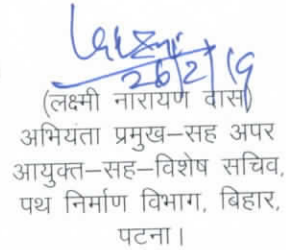 26/2/19
(लक्ष्मी नारायण दास)
अभियंता प्रमुख–सह अपर
आयुक्त–सह–विशेष सचिव,
पथ निर्माण विभाग, बिहार,
पटना।